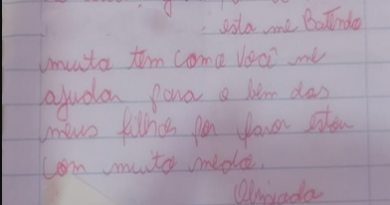 esta me Batendo
muito tem como Você me
ajudar para o bem dos
meus filhos por favor estou
com muito medo.
Obrigada